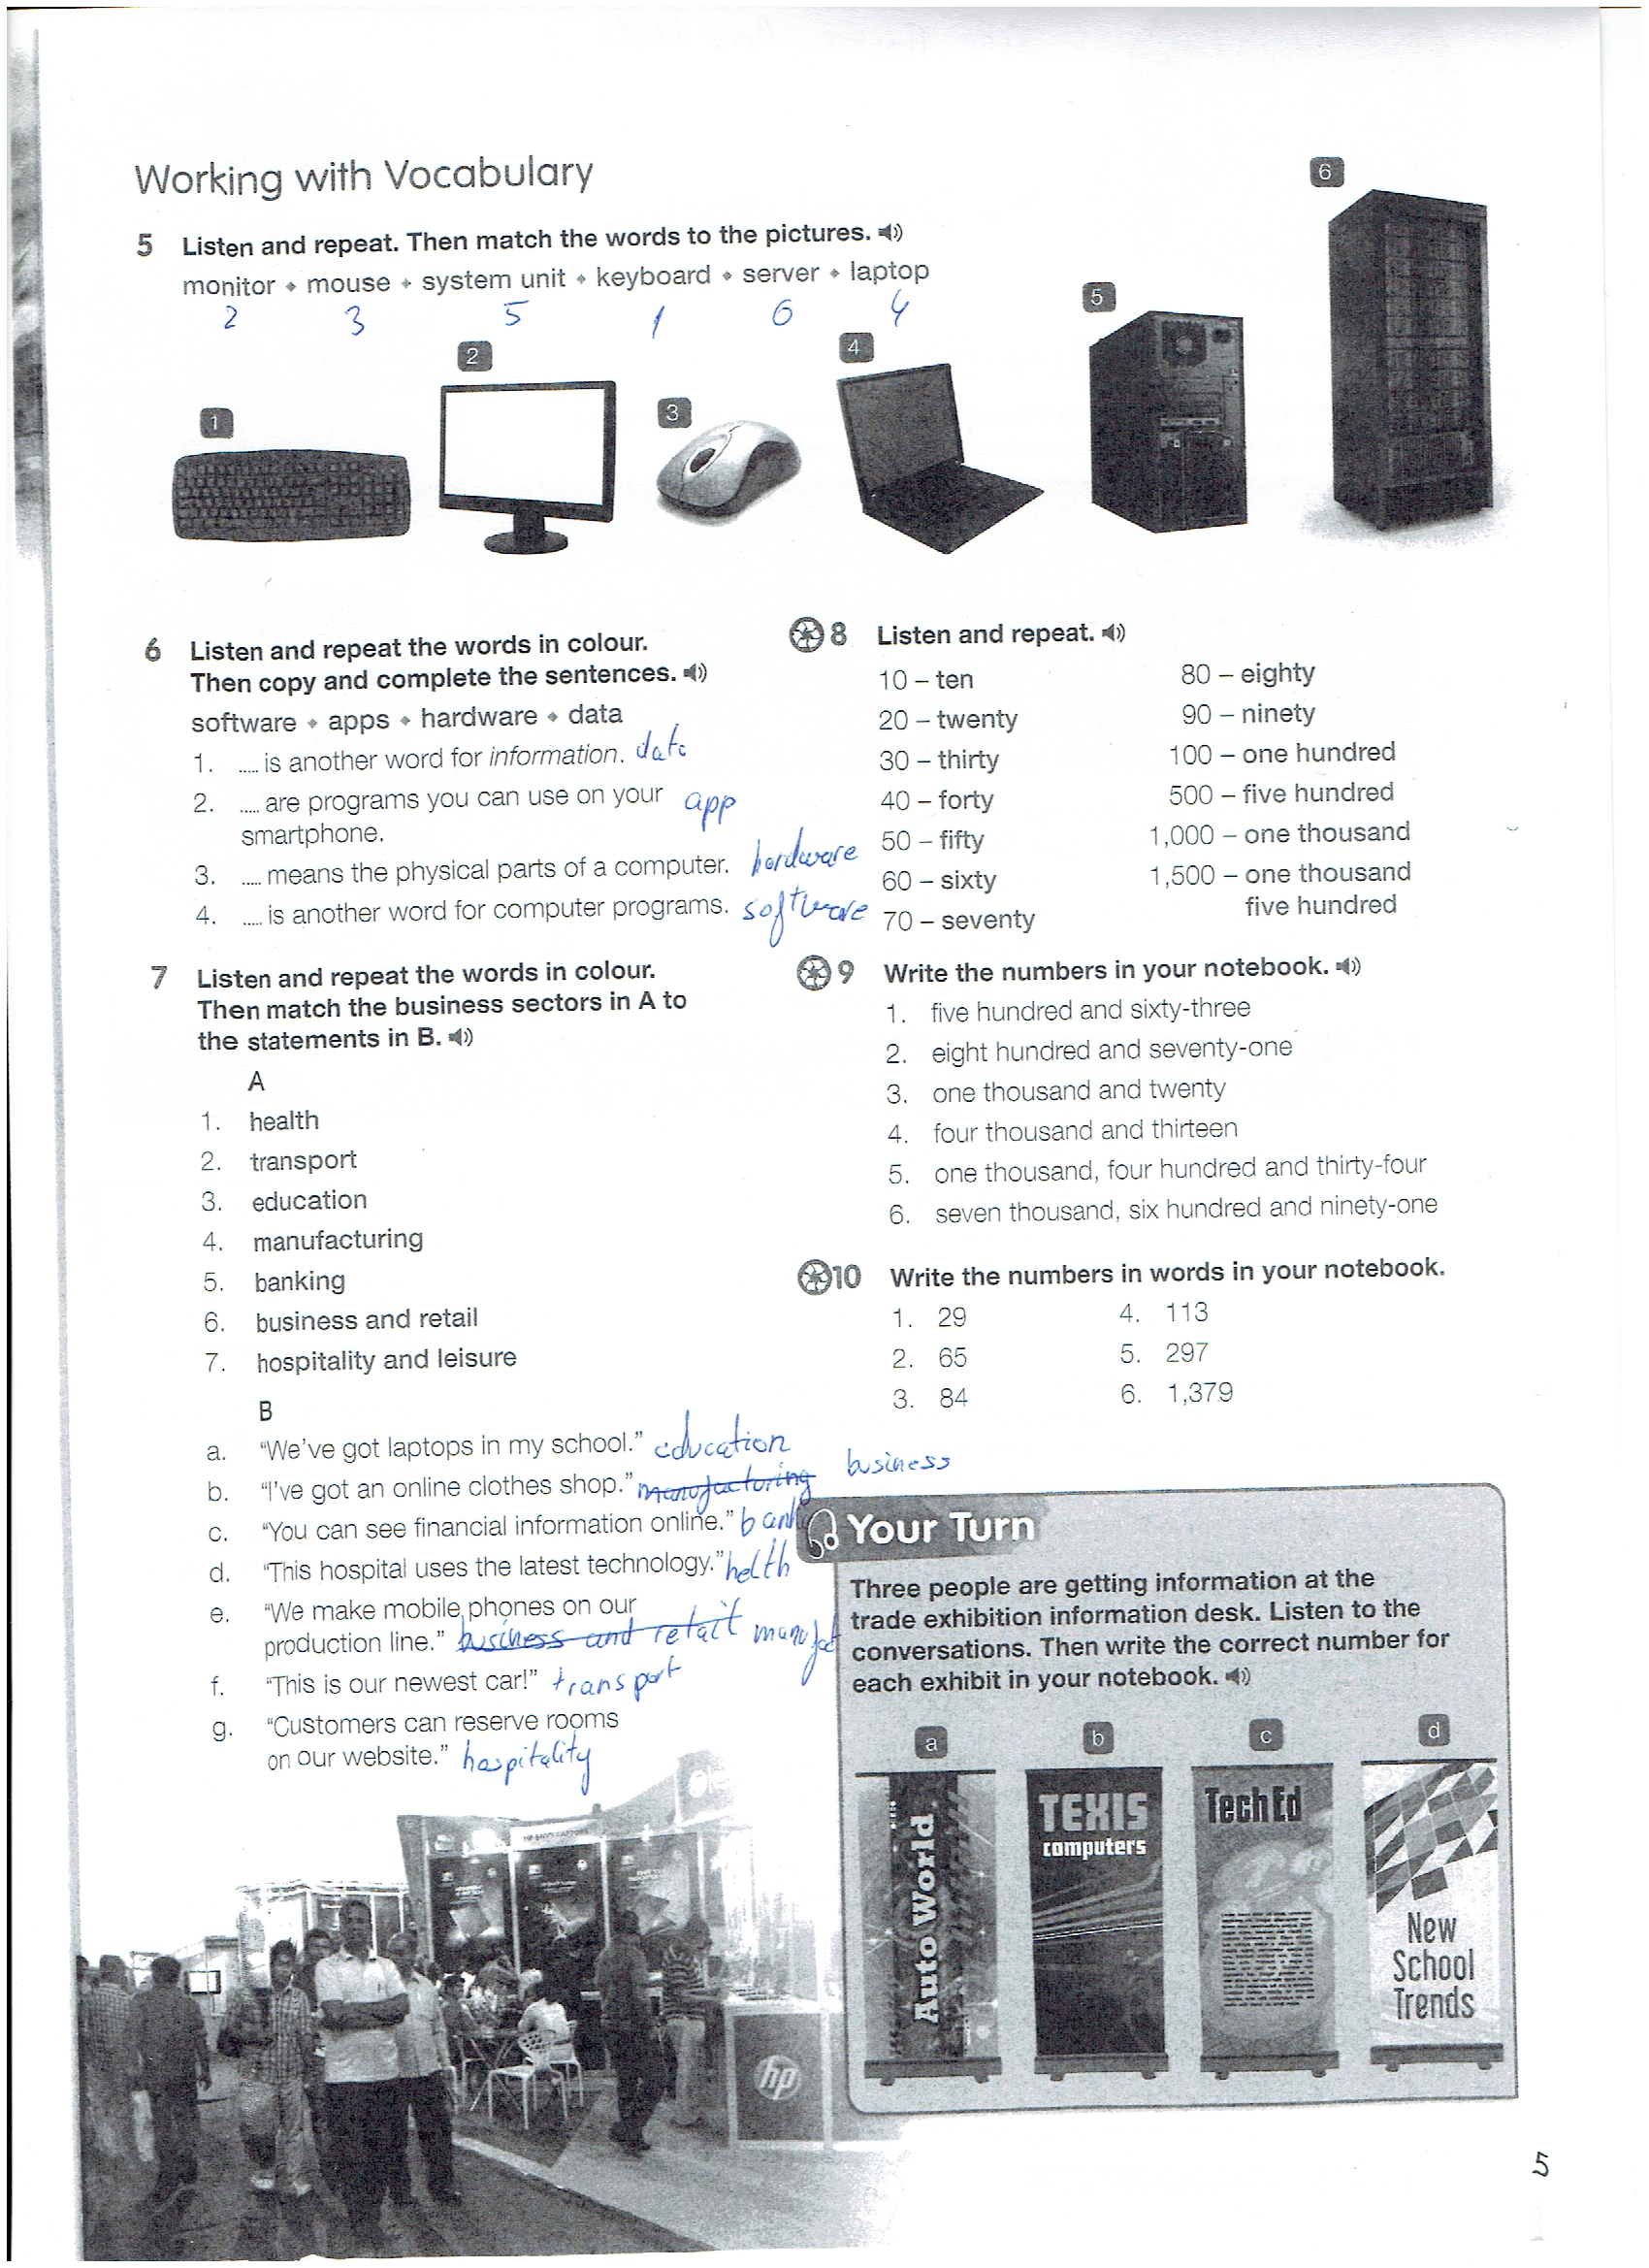 Working with Vocabulary
5 Listen and repeat. Then match the words to the pictures.
monitor • mouse • system unit • keyboard • server • laptop
2 3 5 1 6 4
1
2
3
4
5
6
6 Listen and repeat the words in colour.
Then copy and complete the sentences.
software • apps • hardware • data
1. ..... is another word for information. data
2. ..... are programs you can use on your app
smartphone.
3. ..... means the physical parts of a computer. hardware
4. ..... is another word for computer programs. software
7 Listen and repeat the words in colour.
Then match the business sectors in A to
the statements in B.
A
1. health
2. transport
3. education
4. manufacturing
5. banking
6. business and retail
7. hospitality and leisure
B
a. “We’ve got laptops in my school.” education
b. “I’ve got an online clothes shop.” manufacturing business
c. “You can see financial information online.” bank
d. “This hospital uses the latest technology.” helth
e. “We make mobile phones on our
production line.” business and retail manufact
f. “This is our newest car!” transport
g. “Customers can reserve rooms
on our website.” hospitality
8 Listen and repeat.
10 – ten
20 – twenty
30 – thirty
40 – forty
50 – fifty
60 – sixty
70 – seventy
80 – eighty
90 – ninety
100 – one hundred
500 – five hundred
1,000 – one thousand
1,500 – one thousand
five hundred
9 Write the numbers in your notebook.
1. five hundred and sixty-three
2. eight hundred and seventy-one
3. one thousand and twenty
4. four thousand and thirteen
5. one thousand, four hundred and thirty-four
6. seven thousand, six hundred and ninety-one
10 Write the numbers in words in your notebook.
1. 29
2. 65
3. 84
4. 113
5. 297
6. 1,379
Your Turn
Three people are getting information at the
trade exhibition information desk. Listen to the
conversations. Then write the correct number for
each exhibit in your notebook.
a
b
c
d
Auto World
TEXIS
computers
TechEd
New
School
Trends
hp
5